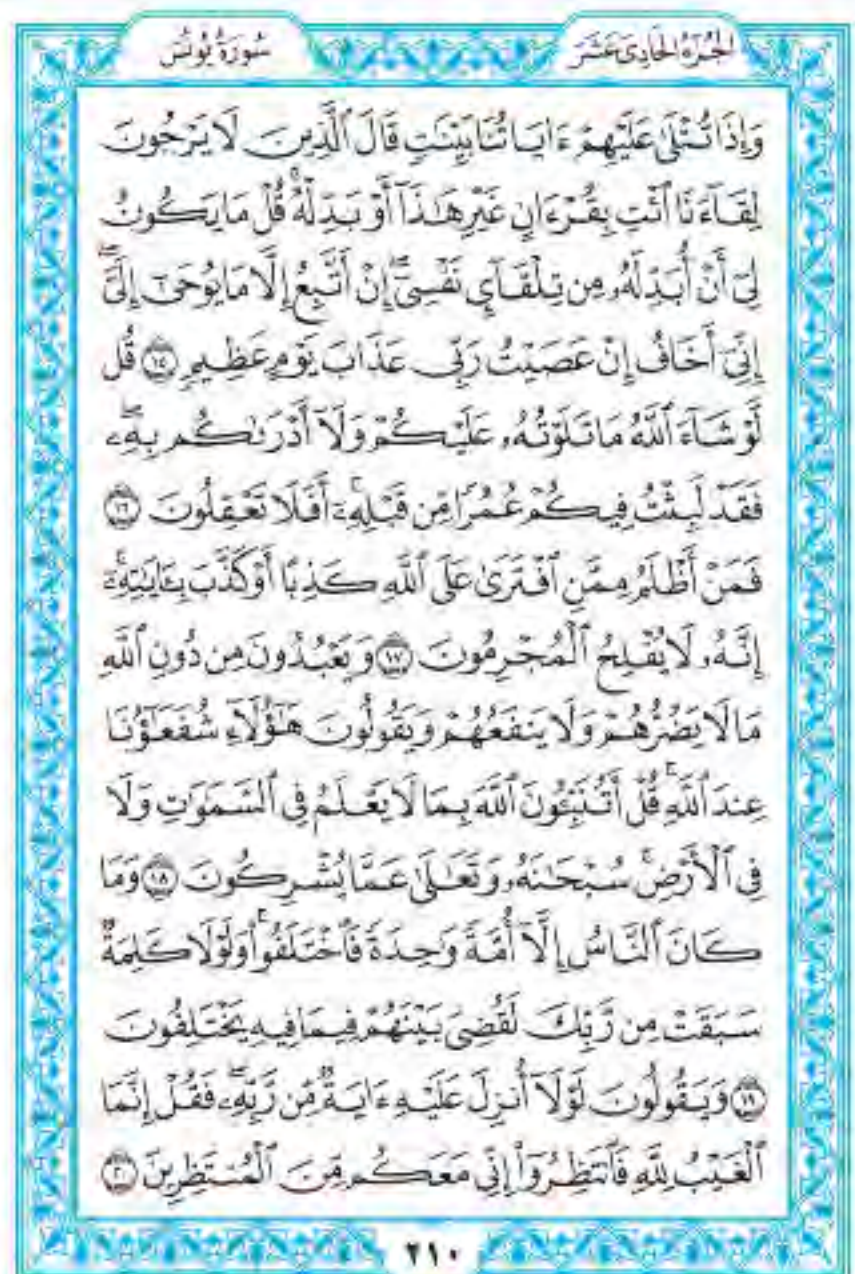 سُورَةُ يُونُسَ
الجُزْءُ الحَادِىَ عَشَرَ
وَإِذَا تُتْلَىٰ عَلَيْهِمْ ءَايَاتُنَا بَيِّنَٰتٍ قَالَ ٱلَّذِينَ لَا يَرْجُونَ
لِقَآءَنَا ٱئْتِ بِقُرْءَانٍ غَيْرِ هَٰذَآ أَوْ بَدِّلْهُ ۚ قُلْ مَا يَكُونُ
لِىٓ أَنْ أُبَدِّلَهُۥ مِن تِلْقَآئِ نَفْسِىٓ ۖ إِنْ أَتَّبِعُ إِلَّا مَا يُوحَىٰٓ إِلَىَّ ۖ
إِنِّىٓ أَخَافُ إِنْ عَصَيْتُ رَبِّى عَذَابَ يَوْمٍ عَظِيمٍ ۝١٥ قُل
لَّوْ شَآءَ ٱللَّهُ مَا تَلَوْتُهُۥ عَلَيْكُمْ وَلَآ أَدْرَىٰكُم بِهِۦ ۖ
فَقَدْ لَبِثْتُ فِيكُمْ عُمُرًا مِّن قَبْلِهِۦٓ ۚ أَفَلَا تَعْقِلُونَ ۝١٦
فَمَنْ أَظْلَمُ مِمَّنِ ٱفْتَرَىٰ عَلَى ٱللَّهِ كَذِبًا أَوْ كَذَّبَ بِـَٔايَٰتِهِۦٓ ۚ
إِنَّهُۥ لَا يُفْلِحُ ٱلْمُجْرِمُونَ ۝١٧ وَيَعْبُدُونَ مِن دُونِ ٱللَّهِ
مَا لَا يَضُرُّهُمْ وَلَا يَنفَعُهُمْ وَيَقُولُونَ هَٰٓؤُلَآءِ شُفَعَٰٓؤُنَا
عِندَ ٱللَّهِ ۚ قُلْ أَتُنَبِّـُٔونَ ٱللَّهَ بِمَا لَا يَعْلَمُ فِى ٱلسَّمَٰوَٰتِ وَلَا
فِى ٱلْأَرْضِ ۚ سُبْحَٰنَهُۥ وَتَعَٰلَىٰ عَمَّا يُشْرِكُونَ ۝١٨ وَمَا
كَانَ ٱلنَّاسُ إِلَّآ أُمَّةً وَٰحِدَةً فَٱخْتَلَفُوا۟ ۚ وَلَوْلَا كَلِمَةٌ
سَبَقَتْ مِن رَّبِّكَ لَقُضِىَ بَيْنَهُمْ فِيمَا فِيهِ يَخْتَلِفُونَ
۝١٩ وَيَقُولُونَ لَوْلَآ أُنزِلَ عَلَيْهِ ءَايَةٌ مِّن رَّبِّهِۦ ۖ فَقُلْ إِنَّمَا
ٱلْغَيْبُ لِلَّهِ فَٱنتَظِرُوٓا۟ إِنِّى مَعَكُم مِّنَ ٱلْمُنتَظِرِينَ ۝٢٠
٢١٠